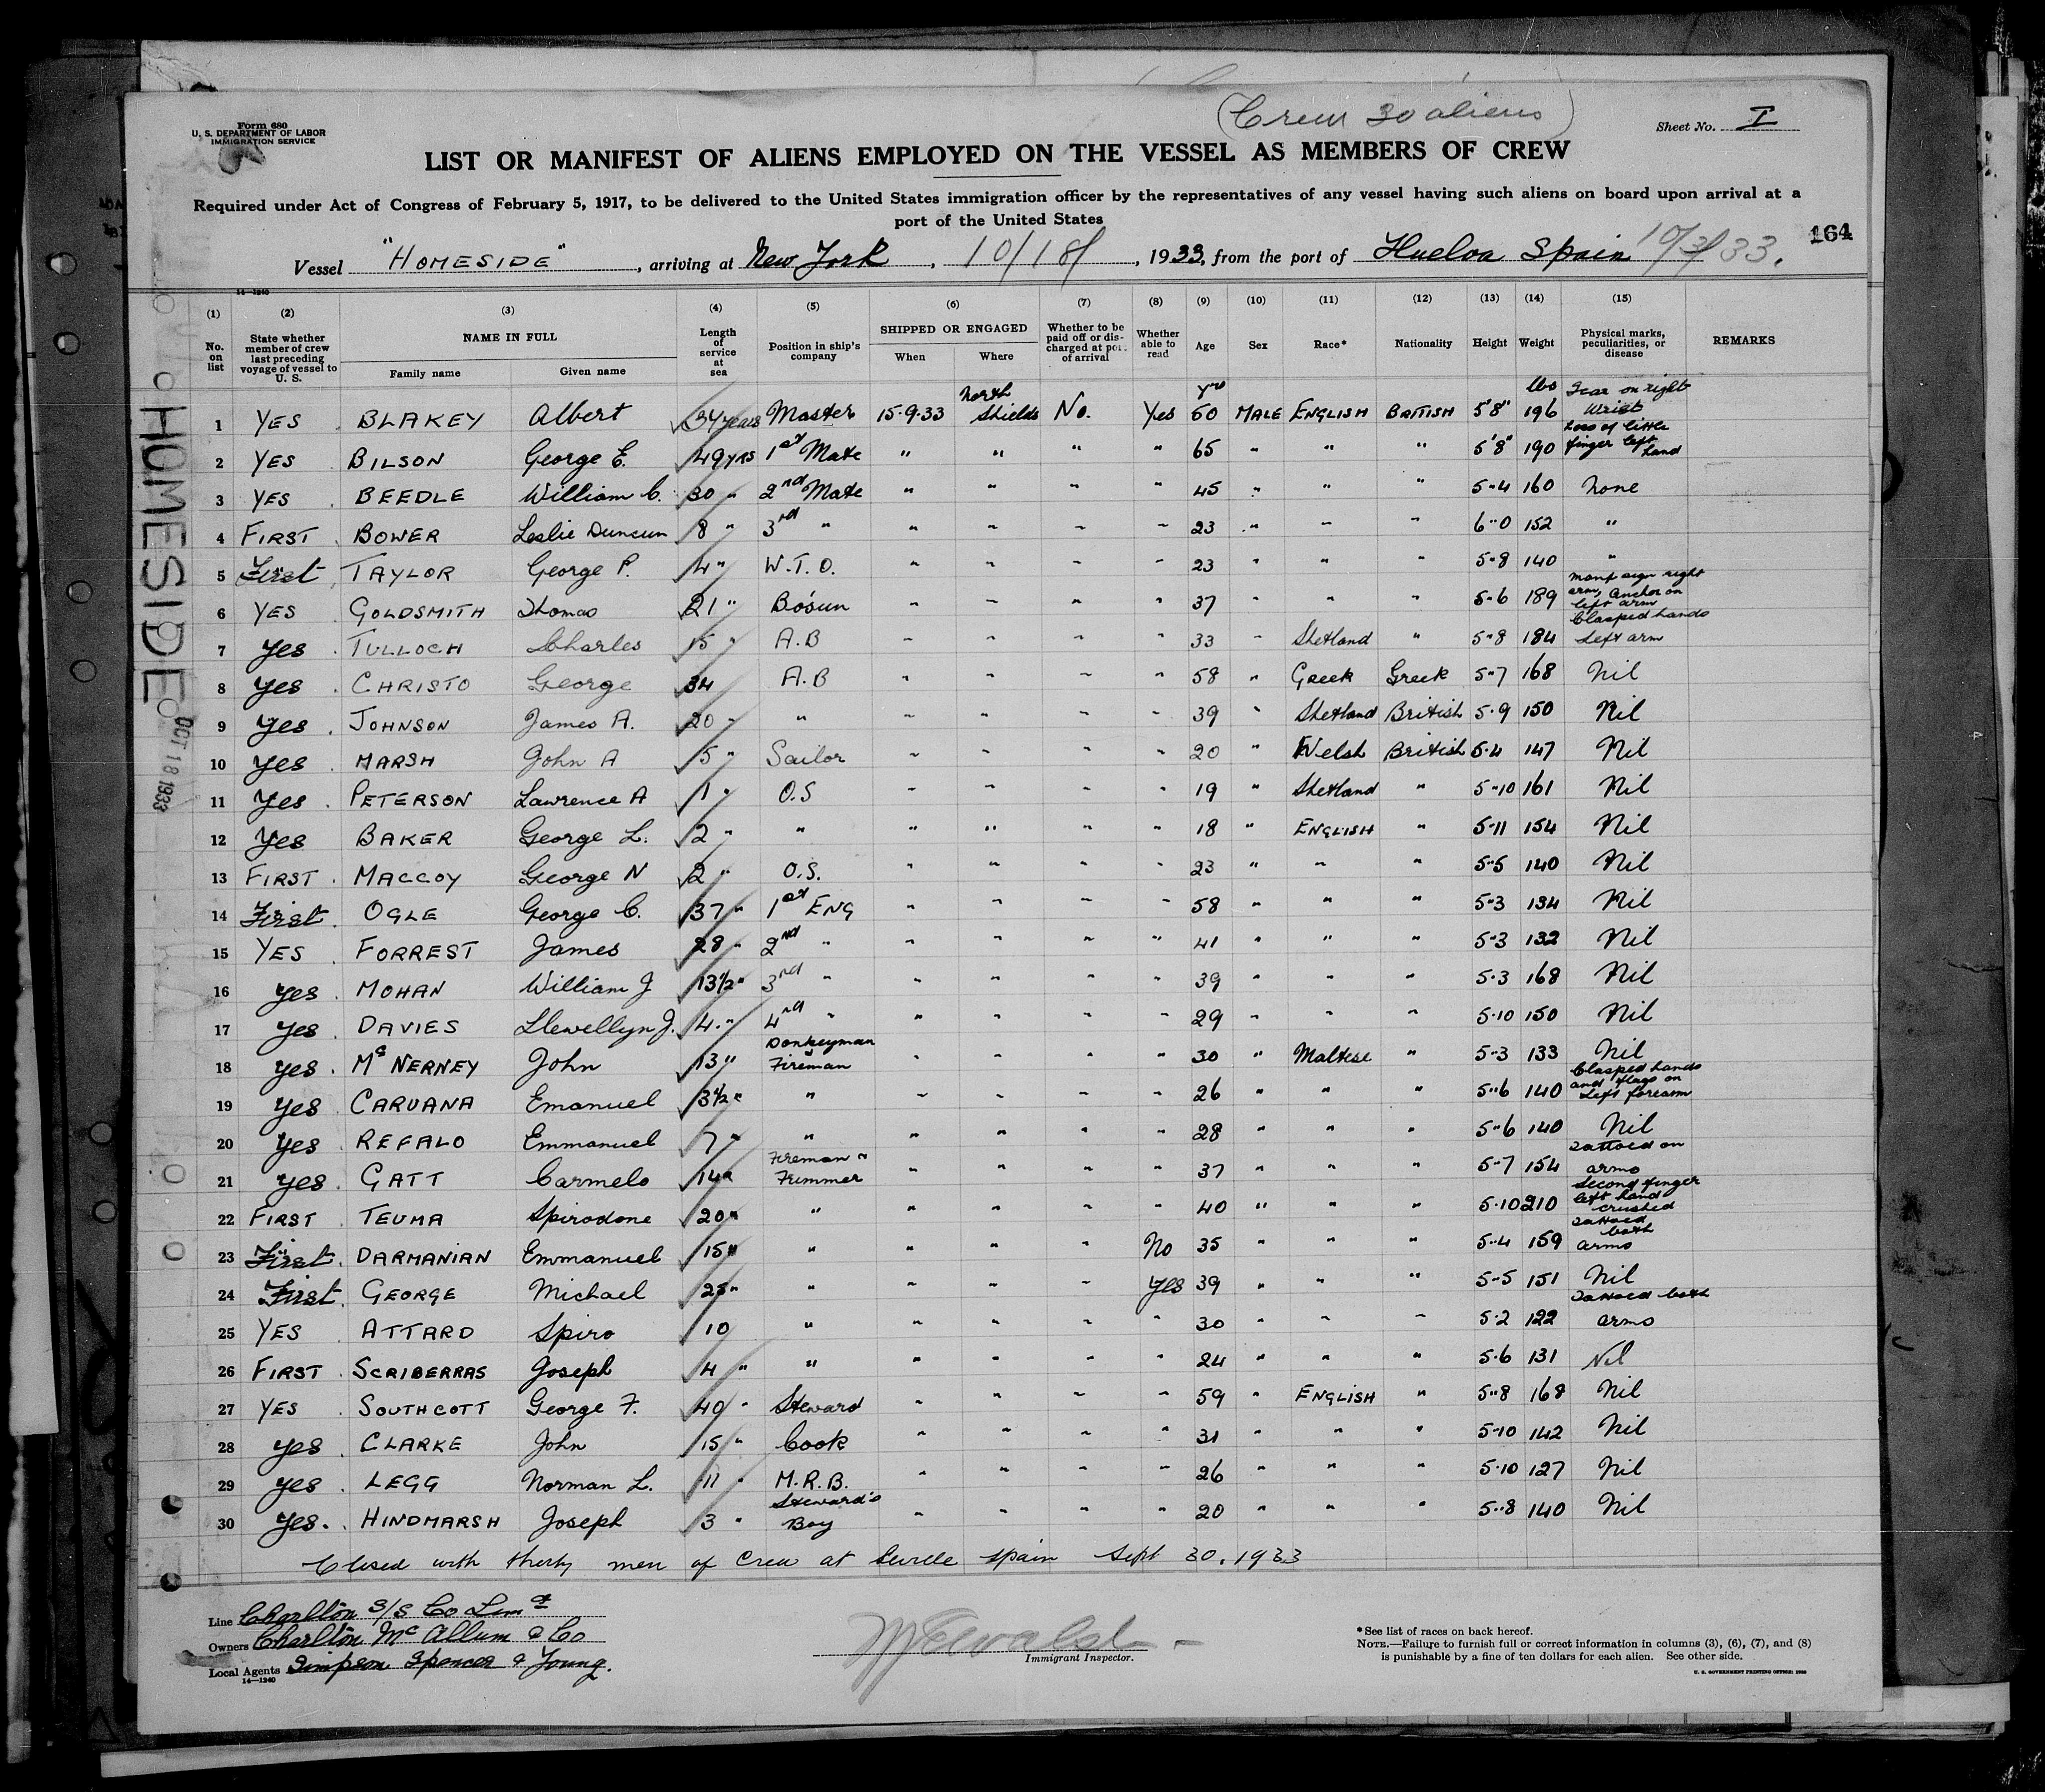 (Crew 30 aliens)
Form 680
U. S. DEPARTMENT OF LABOR
IMMIGRATION SERVICE
Sheet No. I
LIST OR MANIFEST OF ALIENS EMPLOYED ON THE VESSEL AS MEMBERS OF CREW
Required under Act of Congress of February 5, 1917, to be delivered to the United States immigration officer by the representatives of any vessel having such aliens on board upon arrival at a
port of the United States
164
Vessel "HOMESIDE", arriving at New York, 10/18/, 1933, from the port of Huelva Spain 33.
14—1240
(1) (2) (3) (4) (5) (6) (7) (8) (9) (10) (11) (12) (13) (14) (15)
No. on list
State whether member of crew last preceding voyage of vessel to U. S.
NAME IN FULL
Family name Given name
Length of service at sea
Position in ship's company
SHIPPED OR ENGAGED
When Where
Whether to be paid off or discharged at port of arrival
Whether able to read
Age Sex Race* Nationality Height Weight
Physical marks, peculiarities, or disease
REMARKS
1 YES BLAKEY Albert 34 years Master 15·9·33 North Shields No. Yes 50 yrs MALE ENGLISH BRITISH 5'8" 196 lbs Scar on right Wrist
2 YES BILSON George E. 49 yrs 1st Mate " " " " 65 " " " 5'8" 190 Loss of little finger left hand
3 YES BEEDLE William C. 30 " 2nd Mate " " " " 45 " " " 5-4 160 None
4 FIRST BOWER Leslie Duncun 8 " 3rd " " " " " 23 " " " 6-0 152 "
5 First TAYLOR George P. 4 " W.T.O. " " " " 23 " " " 5-8 140 "
6 YES GOLDSMITH Thomas 21 " Bo'sun " " " " 37 " " " 5-6 189 sign right arm, anchor on left arm
7 Yes TULLOCH Charles 15 " A.B " " " " 33 " Shetland " 5-8 184 Clasped hands Left arm
8 Yes CHRISTO George 34 A.B " " " " 58 " Greek Greek 5-7 168 Nil
9 Yes JOHNSON James A. 20 " " " " " " 39 " Shetland British 5-9 150 Nil
10 Yes MARSH John A 5 " Sailor " " " " 20 " Welsh British 5-4 147 Nil
11 Yes PETERSON Lawrence A 1 " O.S " " " " 19 " Shetland " 5-10 161 Nil
12 Yes BAKER George L. 2 " " " " " " 18 " ENGLISH " 5-11 154 Nil
13 FIRST MACCOY George N 2 " O.S. " " " " 23 " " " 5-5 140 Nil
14 First OGLE George C. 37 " 1st ENG " " " " 58 " " " 5-3 134 Nil
15 YES FORREST James 28 " 2nd " " " " " 41 " " " 5-3 132 Nil
16 Yes MOHAN William J 13½ " 3rd " " " " " 39 " " " 5-3 168 Nil
17 Yes DAVIES Llewellyn J. 4 " 4nd " " " " " 29 " " " 5-10 150 Nil
18 Yes McNERNEY John 13 " Donkeyman & Fireman " " " " 30 " Maltese " 5-3 133 Nil
19 Yes CARUANA Emanuel 3½ " " " " " " 26 " " " 5-6 140 Clasped hands and flags on Left forearm
20 Yes REFALO Emmanuel 7 " " " " " " 28 " " " 5-6 140 Nil
21 Yes GATT Carmelo 14 " Fireman & Trimmer " " " " 37 " " " 5-7 154 Tattoed on arms
22 FIRST TEUMA Spirodone 20 " " " " " " 40 " " " 5-10 210 Second finger left hand crushed
23 First DARMANIAN Emmanuel 15 " " " " " No 35 " " " 5-4 159 Tattoed both arms
24 First GEORGE Michael 25 " " " " " Yes 39 " " " 5-5 151 Nil
25 YES ATTARD Spiro 10 " " " " " 30 " " " 5-2 122 Tattoed both arms
26 FIRST SCRIBERRAS Joseph 4 " " " " " " 24 " " " 5-6 131 Nil
27 YES SOUTHCOTT George F. 40 " Steward " " " " 59 " ENGLISH " 5-8 168 Nil
28 Yes CLARKE John 15 " Cook " " " " 31 " " " 5-10 142 Nil
29 Yes LEGG Norman L. 11 " M.R.B. " " " " 26 " " " 5-10 127 Nil
30 Yes HINDMARSH Joseph 3 " Steward's Boy " " " " 20 " " " 5-8 140 Nil
Closed with thirty men of Crew at Seville Spain Sept 30. 1933
Line Charlton S/S Co Limd
Owners Charlton McAllum & Co
Local Agents Simpson Spence & Young.
14—1240
Immigrant Inspector.
*See list of races on back hereof.
NOTE.—Failure to furnish full or correct information in columns (3), (6), (7), and (8)
is punishable by a fine of ten dollars for each alien. See other side.
U. S. GOVERNMENT PRINTING OFFICE: 1932
HOMESIDE
OCT 18 1933